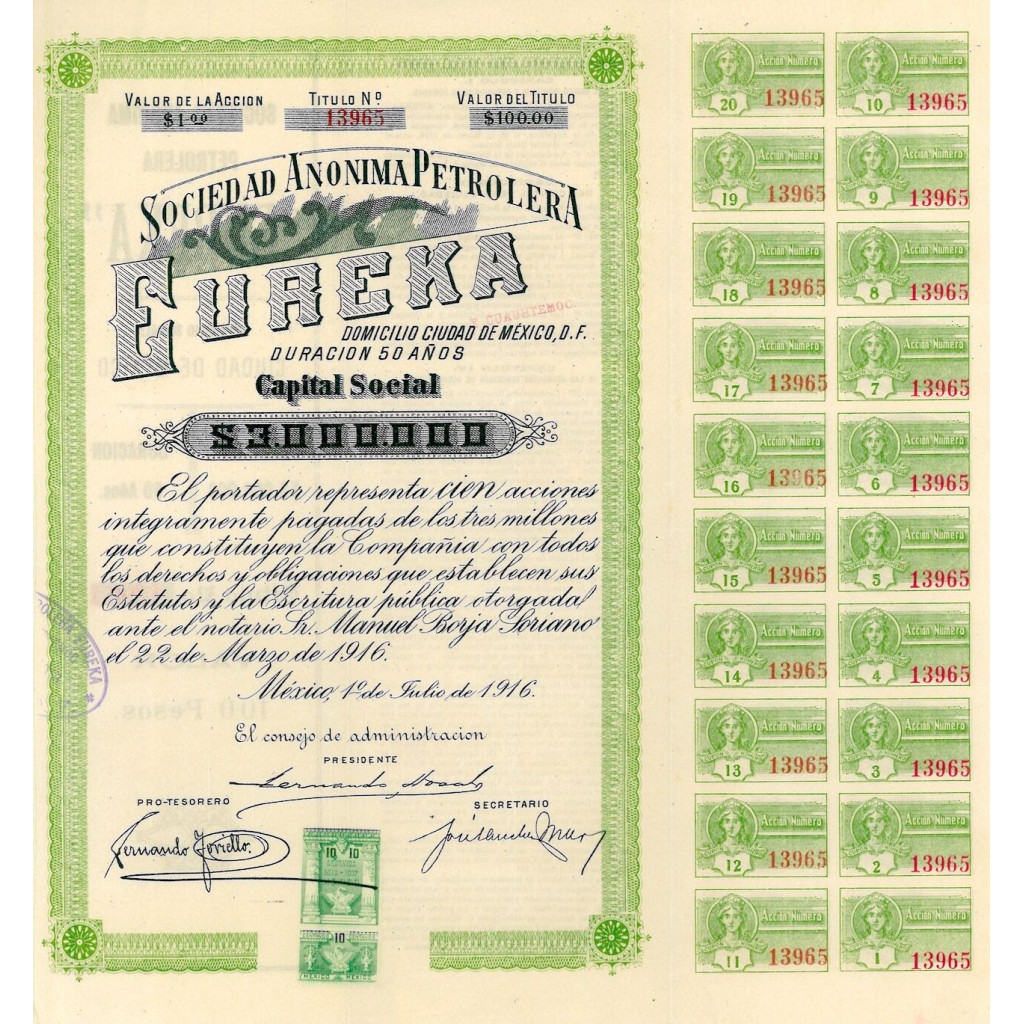 VALOR DE LA ACCION TITULO Nº VALOR DEL TITULO
$1.00 13965 $100.00
SOCIEDAD ANONIMA PETROLERA
EUREKA
CUAUHTEMOC
DOMICILIO CIUDAD DE MÉXICO, D.F.
DURACION 50 AÑOS
Capital Social
$3.000.000
El portador representa cien acciones
integramente pagadas de los tres millones
que constituyen la Compañia con todos
los derechos y obligaciones que establecen sus
Estatutos y la Escritura pública otorgada
ante el notario Sr. Manuel Borja Soriano
el 22 de Marzo de 1916.
México, 1º de Julio de 1916.
El consejo de administracion
PRESIDENTE
Fernando
PRO-TESORERO SECRETARIO
Fernando Torriello.
EUREKA
10 10
10
MEXICO MEXICO
Acción Número Acción Número
20 13965 10 13965
Acción Número Acción Número
19 13965 9 13965
Acción Número Acción Número
18 13965 8 13965
Acción Número Acción Número
17 13965 7 13965
Acción Número Acción Número
16 13965 6 13965
Acción Número Acción Número
15 13965 5 13965
Acción Número Acción Número
14 13965 4 13965
Acción Número Acción Número
13 13965 3 13965
Acción Número Acción Número
12 13965 2 13965
Acción Número Acción Número
11 13965 1 13965